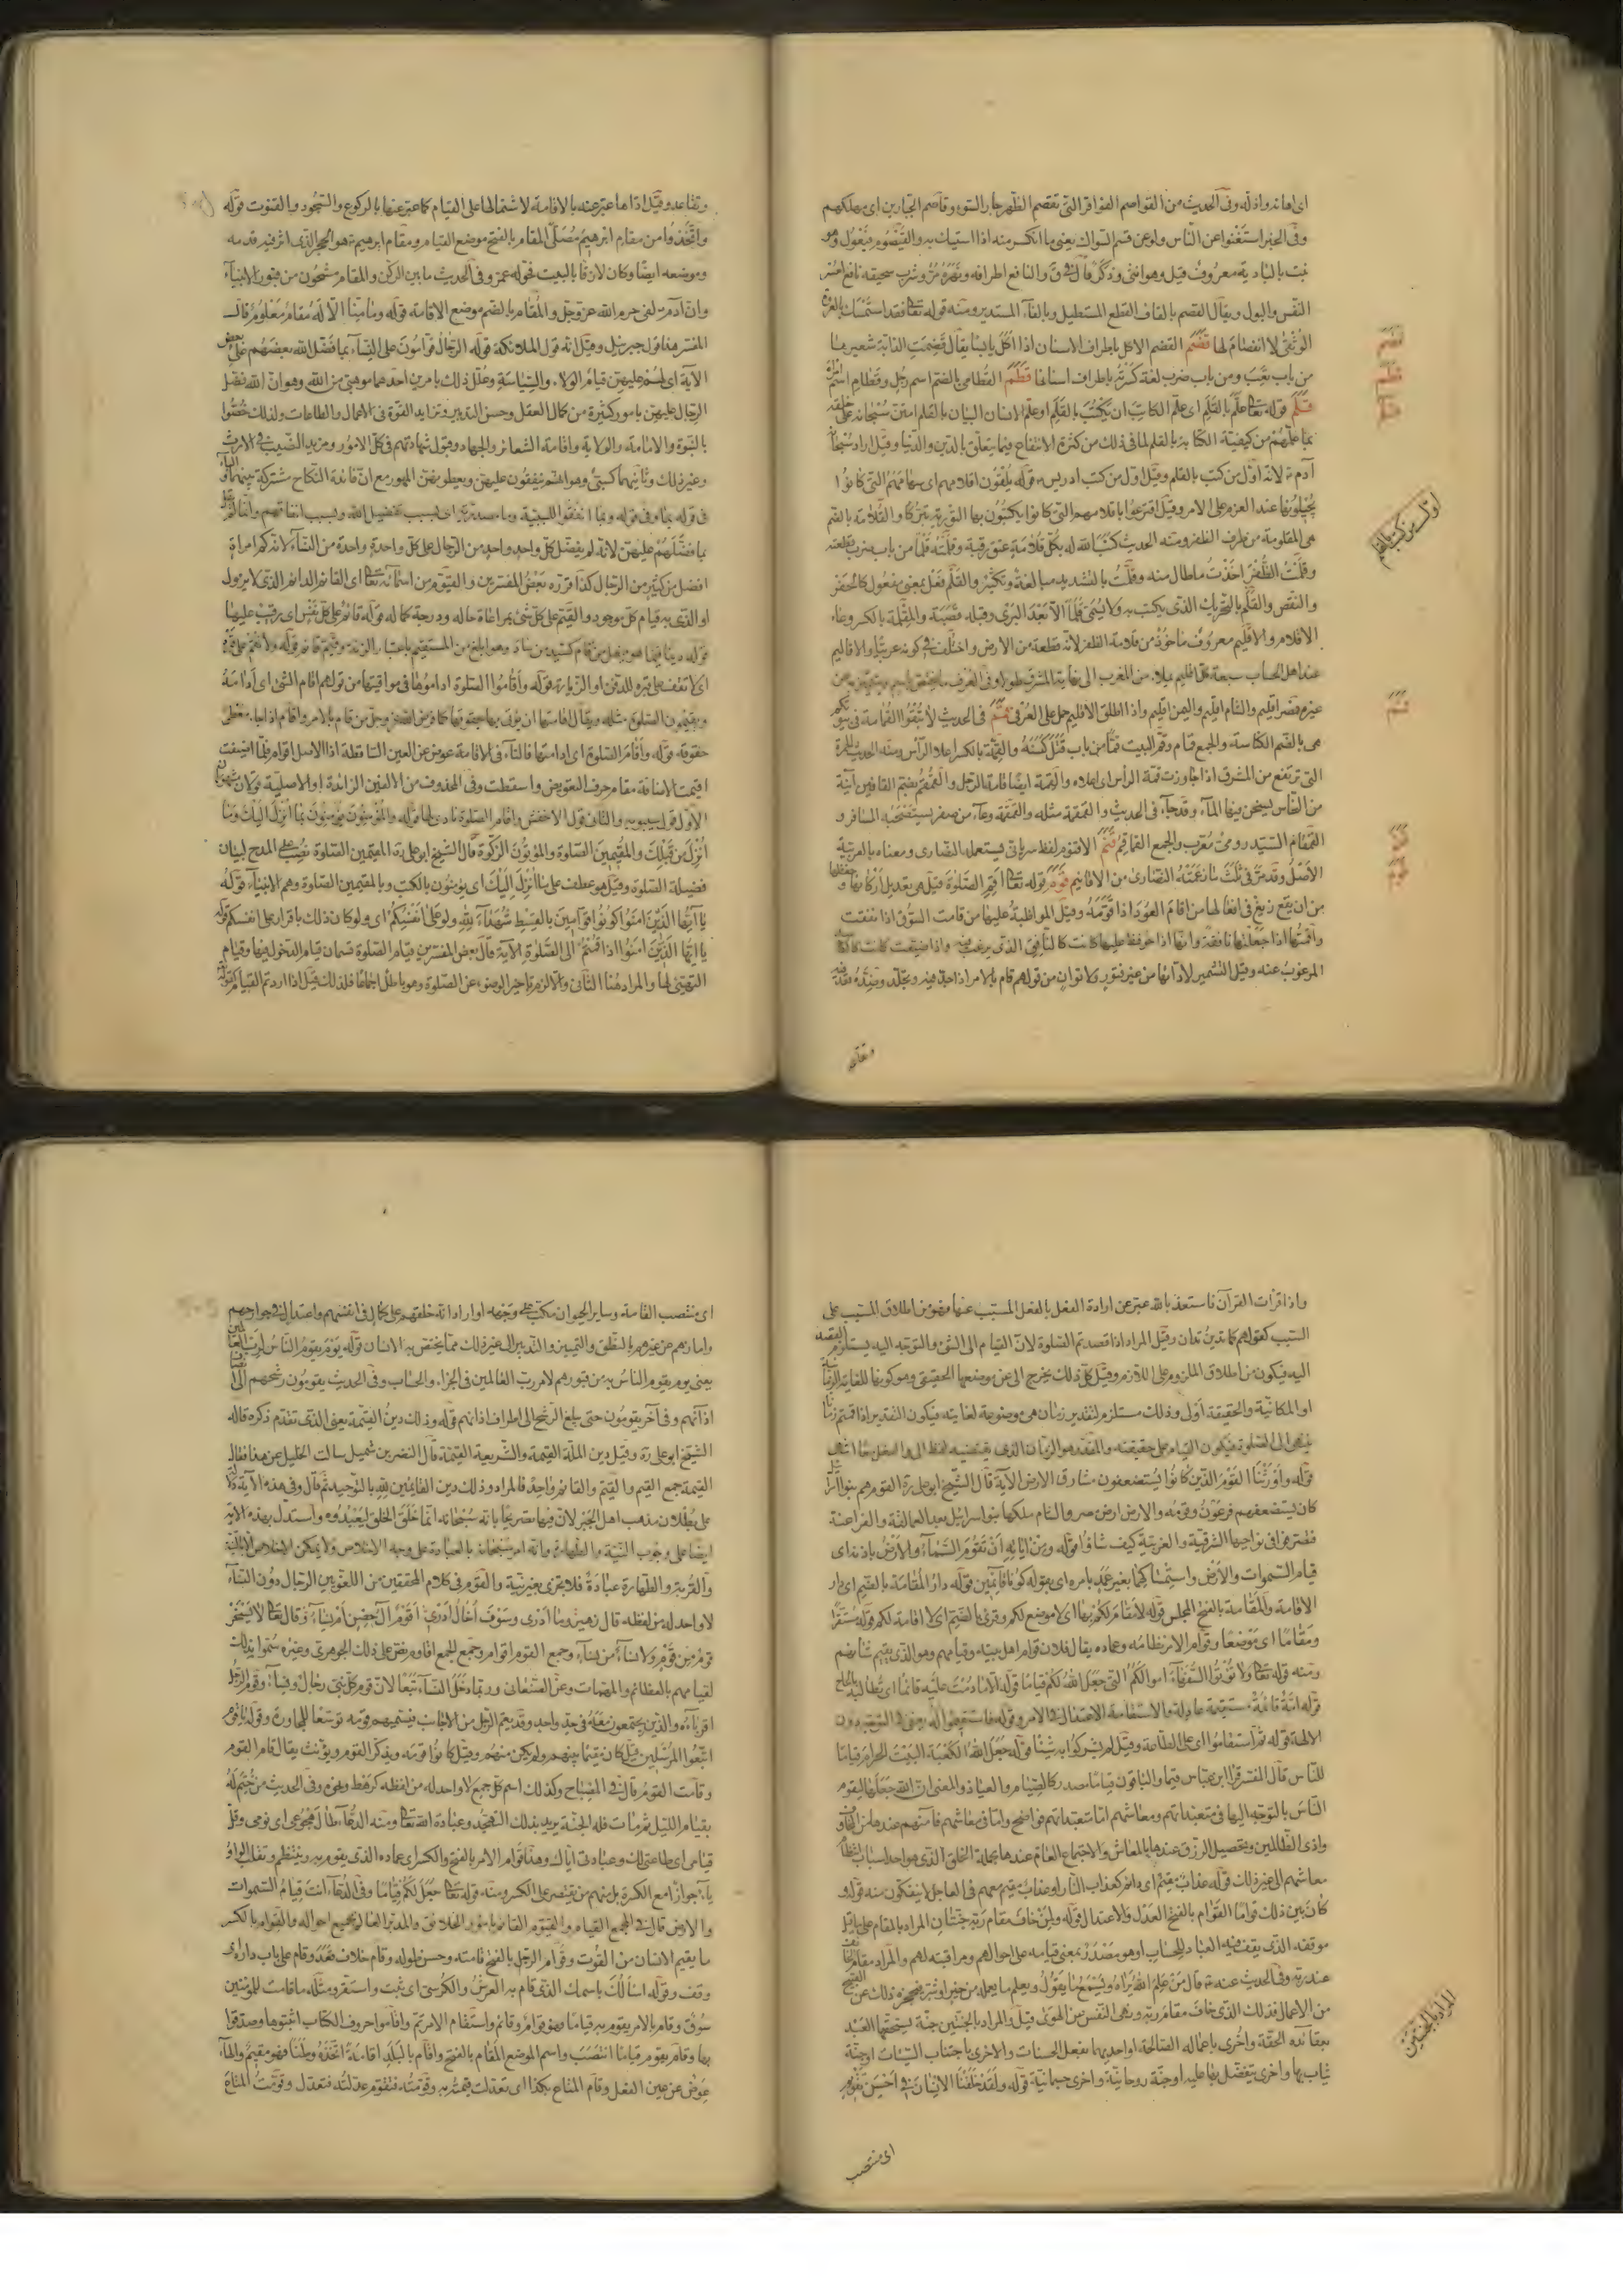 اى اهانه واذله وفى الحديث من القواصم الفواقر التى تقصم الظهر جار السوء وقاصم الجبارين اى مهلكهم
وفى الخبر استغنوا عن الناس ولو عن قصم السواك يعنى ما انكسر منه اذا استيك به والقيصوم فيعول وهو
نبت بالبادية معروف قيل وهو انثى وذكر قال فى ق والنافع اطرافه وزهره مر وشرب سحيقه نافع لعسر
النفس والبول ويقال القصم بالقاف القطع المستطيل وبالفاء المستدير ومنه قوله تعالى فقد استمسك بالعروة
الوثقى لا انفصام لها قضم القضم الاكل باطراف الاسنان اذا اكل يابسا يقال قضمت الدابة شعيرها
من باب تعب ومن باب ضرب لغة كسرته باطراف اسنانها قطم القطامى بالضم اسم رجل وقطام اسم امرأة
قلم قوله تعالى علم بالقلم اى علم الكاتب ان يكتب بالقلم او علم الانسان البيان بالقلم امتن سبحانه على خلقه
بما علمهم من كيفية الكتابة بالقلم لما فى ذلك من كثرة الانتفاع فيما يتعلق بالدين والدنيا وقيل اراد سبحانه
آدم ع لانه اول من كتب بالقلم وقيل اول من كتب ادريس ع قوله يلقون اقلامهم اى سهامهم التى كانوا
يجيلونها عند العزم على الامر وقيل اقترعوا باقلامهم التى كانوا يكتبون بها التورية تبركا والقلامة بالضم
هى المقلومة من طرف الظفر ومنه الحديث كتب الله له بكل قلامة عتق رقبة وقلمته قلما من باب ضرب قطعته
وقلمت الظفر اخذت ما طال منه وقلمت بالتشديد مبالغة وتكثير والقلم فعل بمعنى مفعول كالحفر
والنفض والقلم بالتحريك الذى يكتب به ولا يسمى قلما الا بعد البرى وقبله قصبة والمقلمة بالكسر وعاء
الاقلام والاقليم معروف ماخوذ من قلامة الظفر لانه قطعة من الارض واختلف فى كونه عربيا والاقاليم
عند اهل الحساب سبعة كل اقليم يمتد من المغرب الى نهاية المشرق طولا وفى العرف
غيره فمصر اقليم والشام اقليم واليمن اقليم واذا اطلق الاقليم حمل على العرفى قمم فى الحديث لا تبقوا القمامة فى بيوتكم
هى بالضم الكناسة والجمع قمام وقم البيت قما من باب قتل كنسه والقمة بالكسر اعلا الراس ومنه الحديث الحمرة
التى ترتفع من المشرق اذا جاوزت قمة الرأس اى اعلاه والقمة ايضا قامة الرجل والقمقم بضم القافين آنية
من النحاس يسخن فيها الماء وقد جاء فى الحديث والقمقمة مثله والقمقمة وعاء من صفر يستصحبه المسافر و
القمقام السيد رومى معرب والجمع القماقم قنم الاقنوم لفظ سريانى يستعمله النصارى ومعناه بالعربية
الاصل وقد مر فى ثلث ما زعمته النصارى من الاقانيم قوم قوله تعالى اقم الصلوة قيل هى تعديل اركانها وحفظها
من ان يقع زيغ فى افعالها من اقام العود اذا قومه وقيل المواظبة عليها من قامت السوق اذا نفقت
واقمتها اذا جعلتها نافقة وانها اذا حوفظ عليها كانت كالنافق الذى يرغب فيه واذا ضيعت كانت كالكاسد
المرغوب عنه وقيل التشمير لادائها من غير فتور ولا توان من قولهم قام بالامر اذا جد فيه وتجلد وضده قعد فيه
وتقاعد
قضم
قطم
قلم
اول من كتب بالقلم
قمم
قنم
قوم
وتقاعد وقيل اداها عبر عنه بالاقامة لاشتمالها على القيام كما عبر عنها بالركوع والسجود والقنوت قوله
واتخذوا من مقام ابرهيم مصلى المقام بالفتح موضع القيام ومقام ابرهيم ع هو الحجر الذى اثر فيه قدمه
وموضعه ايضا وكان لازقا بالبيت فحوله عمر وفى الحديث ما بين الركن والمقام مشحون من قبور الانبياء
وان آدم ع لفى حرم الله عز وجل والمقام بالضم موضع الاقامة قوله وما منا الا له مقام معلوم قال
المفسر هذا قول جبرئيل وقيل انه قول الملائكة قوله الرجال قوامون على النساء بما فضل الله بعضهم على بعض
الآية اى لهم عليهن قيام الولاء والسياسة وعلل ذلك بامرين احدهما موهبى من الله وهو ان الله فضل
الرجال عليهن بامور كثيرة من كمال العقل وحسن التدبير وتزايد القوة فى الاعمال والطاعات ولذلك خصوا
بالنبوة والامامة والولاية واقامة الشعائر والجهاد وقبول شهادتهم فى كل الامور ومزيد النصيب فى الارث
وغير ذلك وثانيهما كسبى وهو انهم ينفقون عليهن ويعطونهن المهور مع ان فائدة النكاح مشتركة بينهما والباء
فى قوله بما وفى قوله وبما انفقوا للسببية وما مصدرية اى بسبب تفضيل الله وبسبب انفاقهم وانما لم يقل
بما فضلهم عليهن لانه لم يفضل كل واحد واحد من الرجال على كل واحدة واحدة من النساء لانه كم امراة
افضل من كثير من الرجال كذا قرره بعض المفسرين والقيوم من اسمائه تعالى اى القائم الدائم الذى لا يزول
او الذى به قيام كل موجود والقيم على كل شئ بمراعاة حاله ودرجة كماله قوله قائم على كل نفس اى رقيب عليها
قوله دينا قيما هو فيعل من قام كسيد من ساد وهو ابلغ من المستقيم باعتبار الزنة قوله ولا تقم على قبره
اى لا تقف على قبره للدفن او الزيارة قوله واقاموا الصلوة اداموها فى مواقيتها من قولهم اقام الشئ اى ادامه
ويقيمون الصلوة مثله ويقال اقامتها ان يؤتى بها بحقوقها كما فرض الله عز وجل من قام بالامر واقام اذا جاء معطى
حقوقه قوله واقام الصلوة اى ادامتها فالتاء فى الاقامة عوض عن العين الساقطة اذ الاصل اقوام فلما اضيفت
اقيمت الاضافة مقام حرف التعويض واسقطت وفى المحذوف من الالفين الزائدة او الاصلية قولان
الاول قول سيبويه والثانى قول الاخفش واقام الصلوة نادى لها قوله والمؤمنون يؤمنون بما انزل اليك وما
انزل من قبلك والمقيمين الصلوة والمؤتون الزكوة قال الشيخ ابو على ره المقيمين الصلوة نصب على المدح لبيان
فضيلة الصلوة وقيل هو عطف على بما انزل اليك اى يؤمنون بالكتب وبالمقيمين الصلوة وهم الانبياء قوله
يا ايها الذين امنوا كونوا قوامين بالقسط شهداء لله ولو على انفسكم اى ولو كان ذلك باقرار على انفسكم قوله
يا ايها الذين امنوا اذا قمتم الى الصلوة الآية قال بعض المفسرين قيام الصلوة قسمان قيام الدخول فيها وقيام
التهيئ لها والمراد هنا الثانى والا لزم تاخير الوضوء عن الصلوة وهو باطل اجماعا فلذلك قيل اذا اردتم القيام كقوله
واذا قرات القرآن فاستعذ بالله عبر عن ارادة الفعل بالفعل المسبب عنها فهو من اطلاق المسبب على
السبب كقولهم كما تدين تدان وقيل المراد اذا قصدتم الصلوة لان القيام الى الشئ والتوجه اليه يستلزم القصد
اليه فيكون من اطلاق الملزوم على اللازم وقيل كل ذلك يخرج الى عن موضعها الحقيقى وهو كونها للغاية الزمانية
او المكانية والحقيقة اولى وذلك مستلزم لتقدير زمان هى موضوعة لغايته فيكون التقدير اذا قمتم زمانا
ينتهى الى الصلوة فيكون القيام على حقيقته والمقدر هو الزمان الذى يقتضيه لفظ الى انتهى
قوله واورثنا القوم الذين كانوا يستضعفون مشارق الارض الآية قال الشيخ ابو على ره القوم هم بنو اسرائيل
كان يستضعفهم فرعون وقومه والارض ارض مصر والشام ملكها بنو اسرائيل بعد العمالقة والفراعنة
فتصرفوا فى نواحيها الشرقية والغربية كيف شاؤا قوله ومن اياته ان تقوم السماء والارض باذنه اى
قيام السموات والارض واستمساكها بغير عمد بامره اى بقوله كونا قائمين قوله دار المقامة بالضم اى دار
الاقامة والمقامة بالفتح المجلس قوله لا مقام لكم بها اى لا موضع لكم وقرئ بالضم اى لا اقامة لكم قوله مستقرا
ومقاما اى موضعا وقوام الامر نظامه وعماده يقال فلان قوام اهل بيته وقيامهم وهو الذى يقيم شانهم
ومنه قوله تعالى ولا تؤتوا السفهاء اموالكم التى جعل الله لكم قياما قوله الا ما دمت عليه قائما اى تطالبه
قوله امة قائمة مستقيمة عادلة والاستقامة الاعتدال فى الامر وقوله فاستقيموا اليه يعنى فى التوجه دون
الالهة قوله ثم استقاموا اى على الطاعة وقيل لم يشركوا به شيئا قوله جعل الله الكعبة البيت الحرام قياما
للناس قال المفسر قرأ ابن عباس قيما والباقون قياما مصدر كالصيام والعياذ والمعنى ان الله جعلها ليقوم
الناس بالتوجه اليها فى متعبداتهم ومعاشهم اما متعبداتهم فواضح واما فى معاشهم فامنهم عندها من المخاوف
واذى الظالمين وتحصيل الرزق عندها بالمعاش والاجتماع العام عندها بجملة الخلق الذى هو احد اسباب انتظام
معاشهم الى غير ذلك قوله عذاب مقيم اى دائم كعذاب النار او عذاب مقيم معهم فى العاجل لا ينفكون منه قوله و
كان بين ذلك قواما القوام بالفتح العدل والاعتدال قوله ولمن خاف مقام ربه جنتان المراد بالمقام على ما قيل
موقفه الذى يقف فيه العباد للحساب او هو مصدر بمعنى قيامه على احوالهم ومراقبته لهم والمراد مقام الخائف
عند ربه وفى الحديث عنه ع قال من علم ان الله يراه ويسمع ما يقول ويعلم ما يعمله من خير او شر فيحجزه ذلك عن القبيح
من الاعمال فذلك الذى خاف مقام ربه ونهى النفس عن الهوى قيل والمراد بالجنتين جنة يستحقها العبد
بعقائده الحقة واخرى باعماله الصالحة او احديهما بفعل الحسنات والاخرى باجتناب السيئات او جنة
يثاب بها واخرى يتفضل بها عليه او جنة روحانية واخرى جسمانية قوله ولقد خلقنا الانسان فى احسن تقويم
اى منتصب
المراد بالجنتين
اى منتصب القامة وساير الحيوان مكب على وجهه او اراد انه خلقهم على كمال فى انفسهم واعتدال فى جوارحهم
وامازهم عن غيرهم بالنطق والتمييز والتدبير الى غير ذلك مما يختص به الانسان قوله يوم يقوم الناس لرب العالمين
يعنى يوم يقوم الناس من قبورهم لامر رب العالمين فى الجزاء والحساب وفى الحديث يقومون رشحهم الى
اذانهم وفى آخر يقومون حتى يبلغ الرشح الى اطراف اذانهم قوله وذلك دين القيمة يعنى الذى تقدم ذكره قاله
الشيخ ابو على ره وقيل دين الملة القيمة والشريعة القيمة قال النضر بن شميل سالت الخليل عن هذا فقال
القيمة جمع القيم والقيم والقائم واحد فالمراد وذلك دين القائمين لله بالتوحيد ثم قال وفى هذه الآية دلالة
على بطلان مذهب اهل الجبر لان فيها تصريحا بانه سبحانه انما خلق الخلق ليعبدوه واستدل بهذه الآية
ايضا على وجوب النية والطهارة وانه امر سبحانه بالعبادة على وجه الاخلاص ولا يمكن الاخلاص الا بالنية
والقربة والطهارة عبادة فلا تجزى بغير نية والقوم فى كلام المحققين من اللغويين الرجال دون النساء
لا واحد له من لفظه قال زهير وما ادرى وسوف اخال ادرى اقوم آل حصن ام نساء وقال تعالى لا يسخر
قوم من قوم ولا نساء من نساء وجمع القوم اقوام وجمع الجمع اقاوم ونص على ذلك الجوهرى وغيره سموا بذلك
لقيامهم بالعظائم والمهمات وعن الصغانى وربما دخل النساء تبعا لان قوم كل نبى رجال ونساء وقوم الرجل
اقرباؤه والذين يجتمعون معه فى جد واحد وقد يقيم الرجل بين الاجانب فيسميهم قومه توسعا للمجاورة وقوله يا قوم
اتبعوا المرسلين قيل كان مقيما بينهم ولم يكن منهم وقيل كانوا قومه ويذكر القوم ويؤنث يقال قام القوم
وقامت القوم قال فى المصباح وكذلك اسم كل جمع لا واحد له من لفظه كرهط ونفر وفى الحديث من ختم له
بقيام الليل ثم مات فله الجنة يريد بذلك التهجد وعبادة الله تعالى ومنه الدعاء طال هجوعى اى نومى وقل
قيامى اى طاعتى لك وعبادتى اياك وهذا قوام الامر بالفتح والكسر اى عماده الذى يقوم به وينتظم وتقلب الواو
ياء جوازا مع الكسرة بل منهم من يقتصر على الكسر ومنه قوله تعالى جعل لكم قياما وفى الدعاء انت قيام السموات
والارض قال فى المجمع القيام والقيوم القائم بامور الخلائق والمدبر العالم بجميع احواله والقوام بالكسر
ما يقيم الانسان من القوت وقوام الرجل بالفتح قامته وحسن طوله وقام خلاف قعد وقام على باب داره اى
وقف وقوله اسالك باسمك الذى قام به العرش والكرسى اى ثبت واستقر ومثله ما قامت للمؤمنين
سوق وقام بالامر يقوم به قياما فهو قوام وقائم واستقام الامر تم واقاموا حروف الكتاب اثبتوها وصدقوا
بها وقام يقوم قياما انتصب واسم الموضع المقام بالفتح واقام بالبلد اقامة اتخذه وطنا فهو مقيم والهاء
عوض عن عين الفعل وقام المتاع بكذا اى تعدلت قيمته به وقومته فتقوم عدلته فتعدل وقومت المتاع